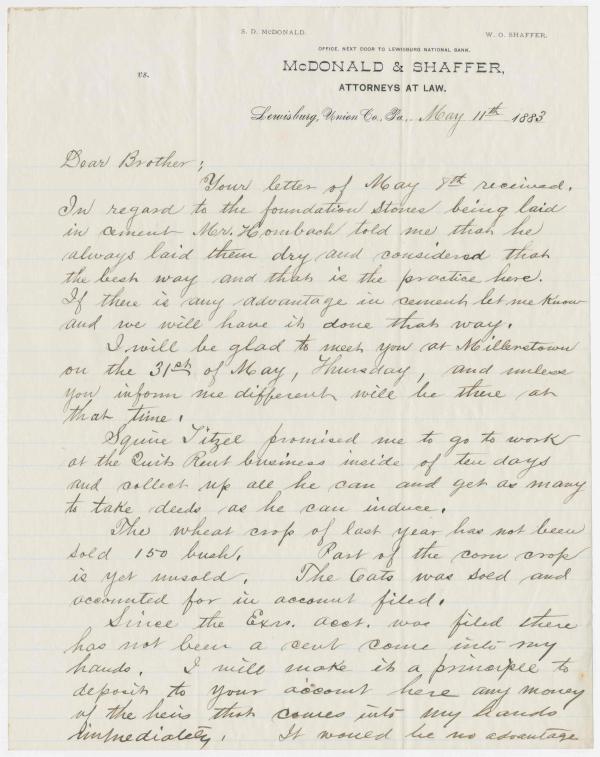 S. D. McDONALD.
W. O. SHAFFER.
OFFICE, NEXT DOOR TO LEWISBURG NATIONAL BANK.
vs.
McDONALD & SHAFFER,
ATTORNEYS AT LAW.
Lewisburg, Union Co., Pa., May 11th 1883
Dear Brother;
Your letter of May 8th received.
In regard to the foundation stones being laid
in cement Mr. Hombach told me that he
always laid them dry and considered that
the best way and that is the practice here.
If there is any advantage in cement let me know
and we will have it done that way.
I will be glad to meet you at Millerstown
on the 31st of May, Thursday, and unless
you inform me different will be there at
that time.
Squire Titzel promised me to go to work
at the Quit Rent business inside of ten days
and collect up all he can and get as many
to take deeds as he can induce.
The wheat crop of last year has not been
sold 150 bush. Part of the corn crop
is yet unsold. The Oats was sold and
accounted for in account filed.
Since the Exrs. acct. was filed there
has not been a cent come into my
hands. I will make it a principle to
deposit to your account here any money
of the heirs that comes into my hands
immediately. It would be no advantage